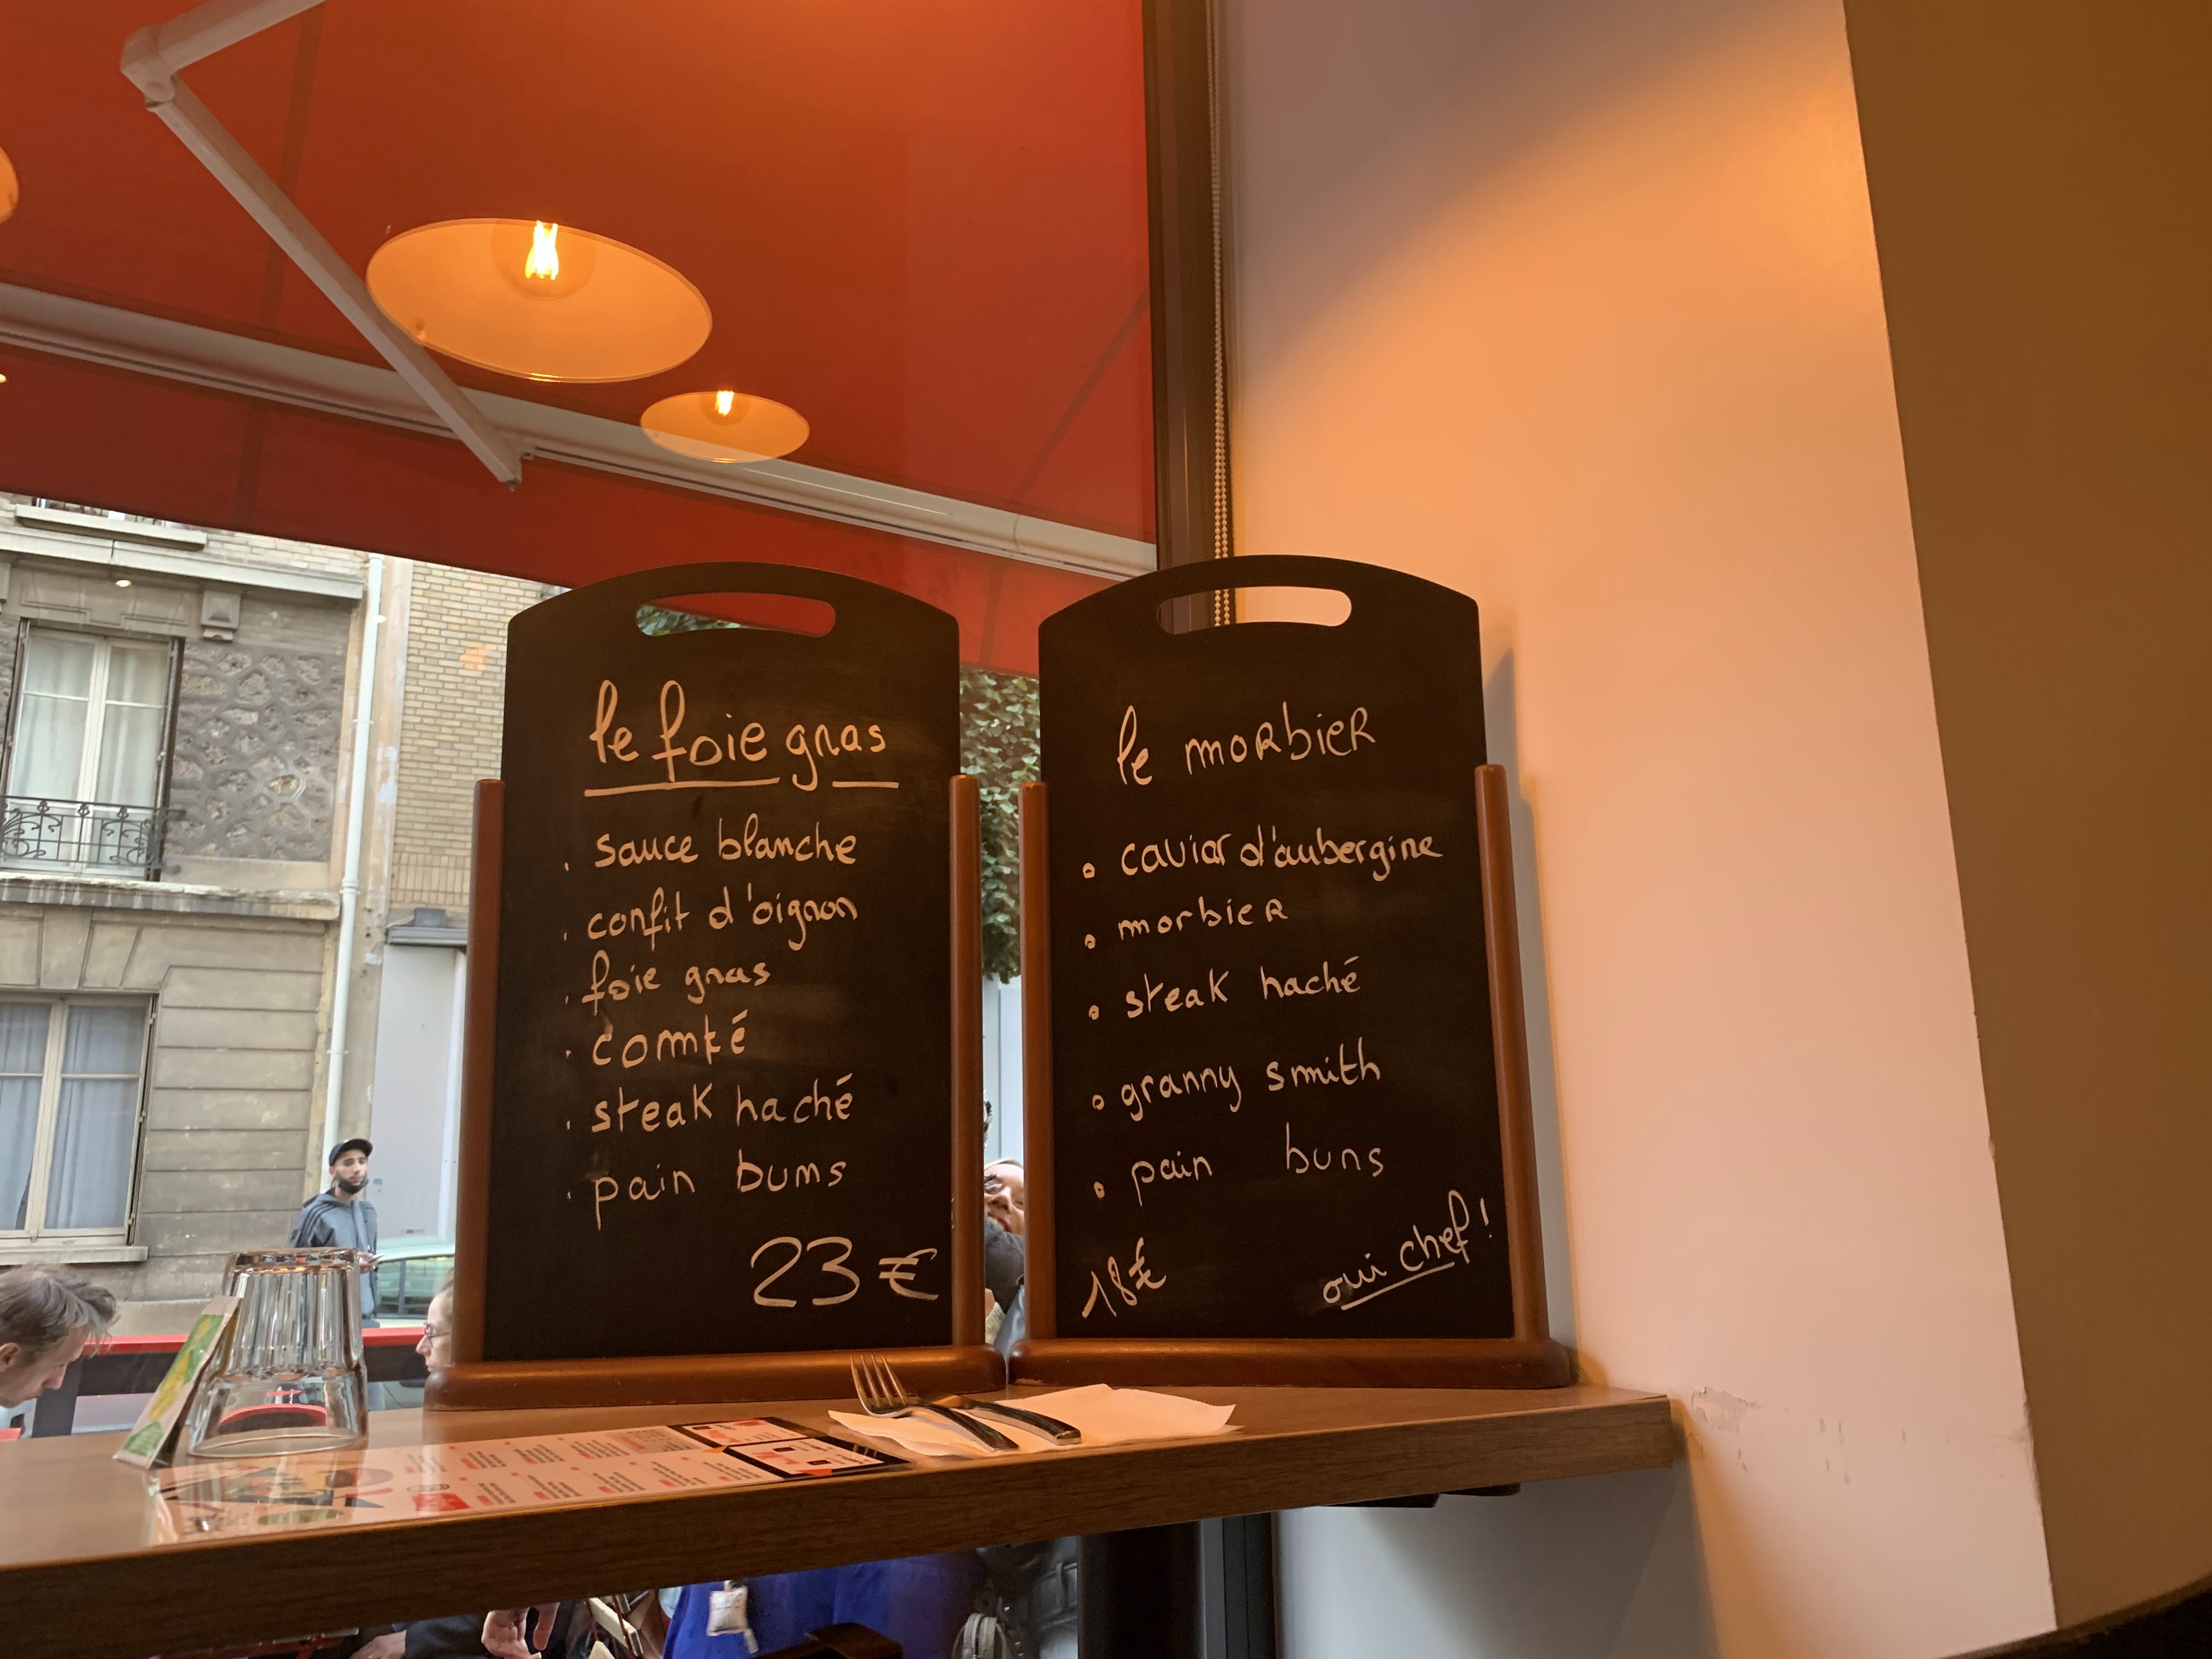 le foie gras
. sauce blanche
. confit d'oignon
. foie gras
. comté
. steak haché
. pain bums
23 €
le morbier
• caviar d'aubergine
• morbier
• steak haché
• granny smith
• pain buns
18€
oui chef !